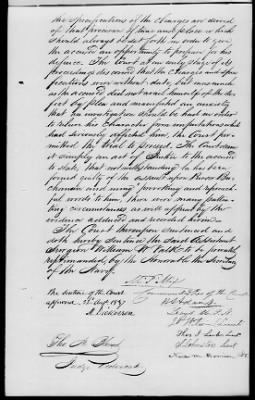 the specifications of the charges are devoid
of that precision of time and place which
should always be set forth in order to give
the accused an opportunity to prepare for his
defence. The Court at an early stage of its
proceedings discovered that the charges and spe-
cifications were without date, but inasmuch
as the accused did not avail himself of the de-
fect by plea and manifested an anxiety
that an investigation should be had in order
to relieve his character from imputations which
had seriously affected him, the Court per-
mitted the trial to proceed. The Court deem
it simply an act of Justice to the accused
to state, that notwithstanding he has been
found guilty of the assault upon
and using provoking and reproach-
ful words to him, there were many pallia-
ting circumstances as will appear by the
evidence adduced and recorded herein.
The Court therefore sentenced and
doth hereby sentence the said Assistant
Surgeon William W. to be
reprimanded, by the Honorable the Secretary
of the Navy.
The sentence of the Court
approved 22 1837
M. Dickerson
Judge Advocate